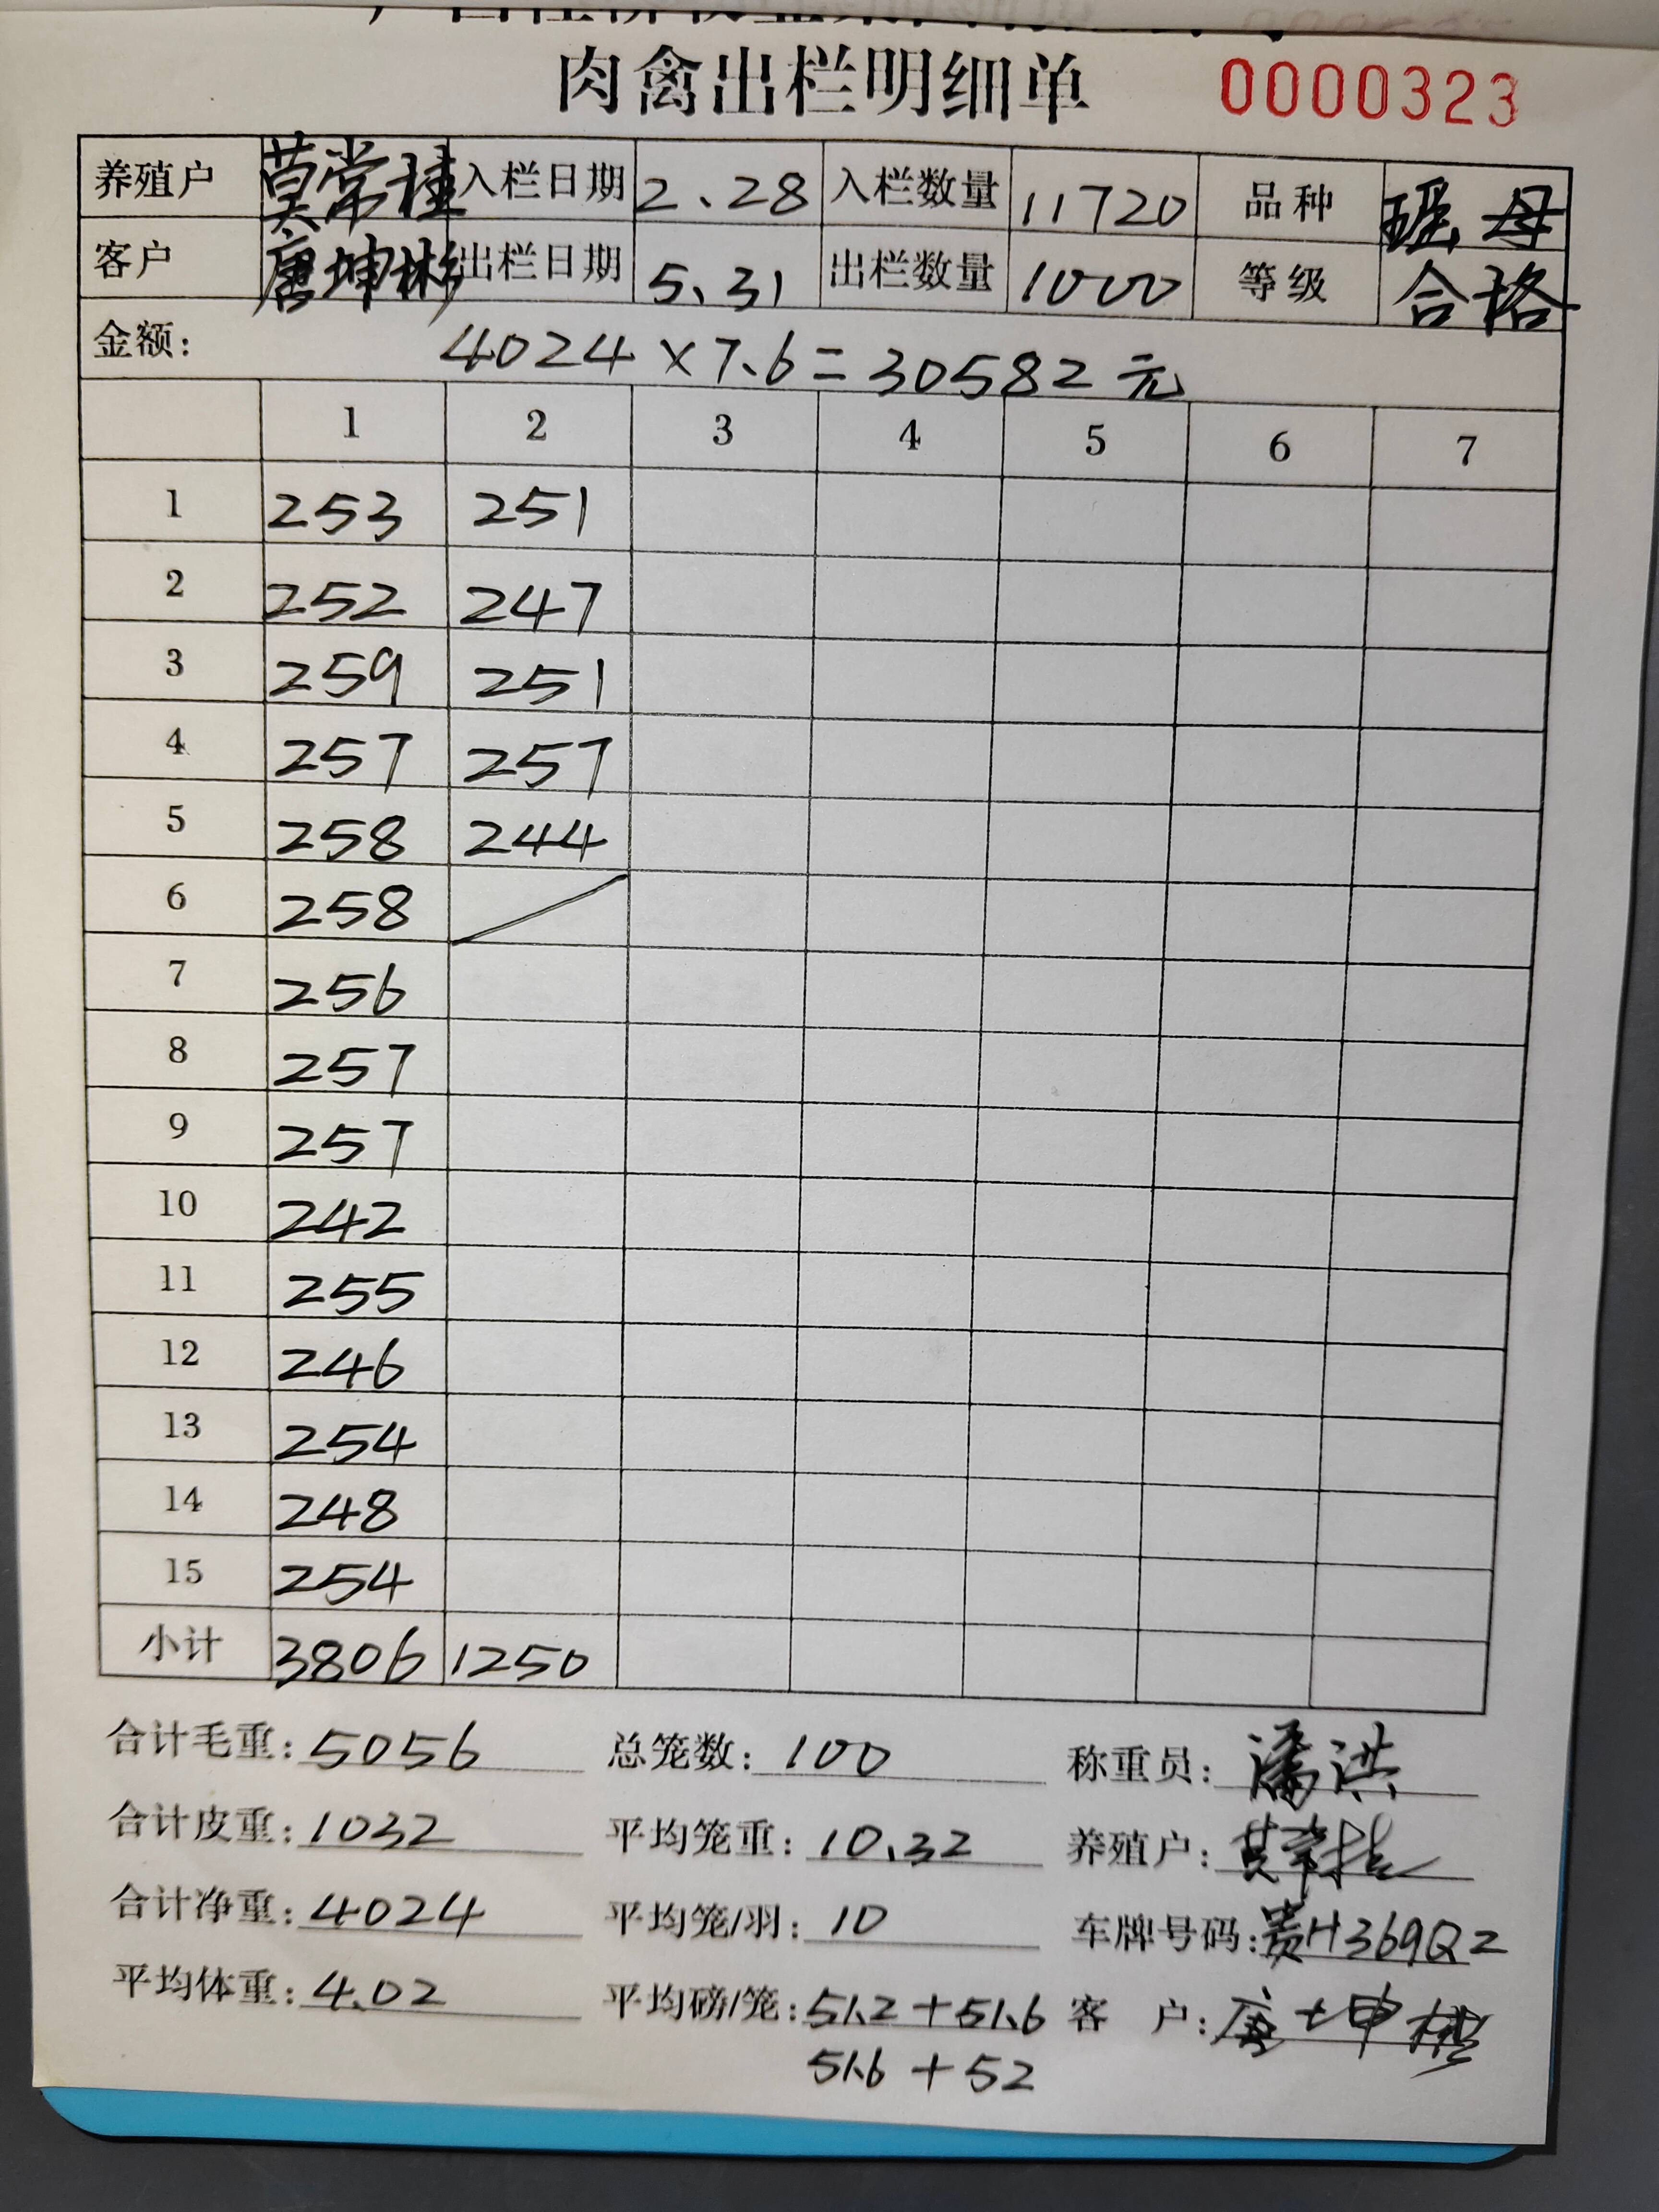 肉禽出栏明细单 0000323
养殖户 莫常桂 入栏日期 2.28 入栏数量 11720 品种 瑶母
客户 唐坤彬 出栏日期 5.31 出栏数量 1000 等级 合格
金额: 4024×7.6=30582元
1 2 3 4 5 6 7
1 253 251
2 252 247
3 259 251
4 257 257
5 258 244
6 258
7 256
8 257
9 257
10 242
11 255
12 246
13 254
14 248
15 254
小计 3806 1250
合计毛重: 5056 总笼数: 100 称重员: 潘洪
合计皮重: 1032 平均笼重: 10.32 养殖户: 莫常桂
合计净重: 4024 平均笼/羽: 10 车牌号码: 贵H369Q2
平均体重: 4.02 平均磅/笼: 51.2+51.6 客 户: 唐坤彬
51.6+52